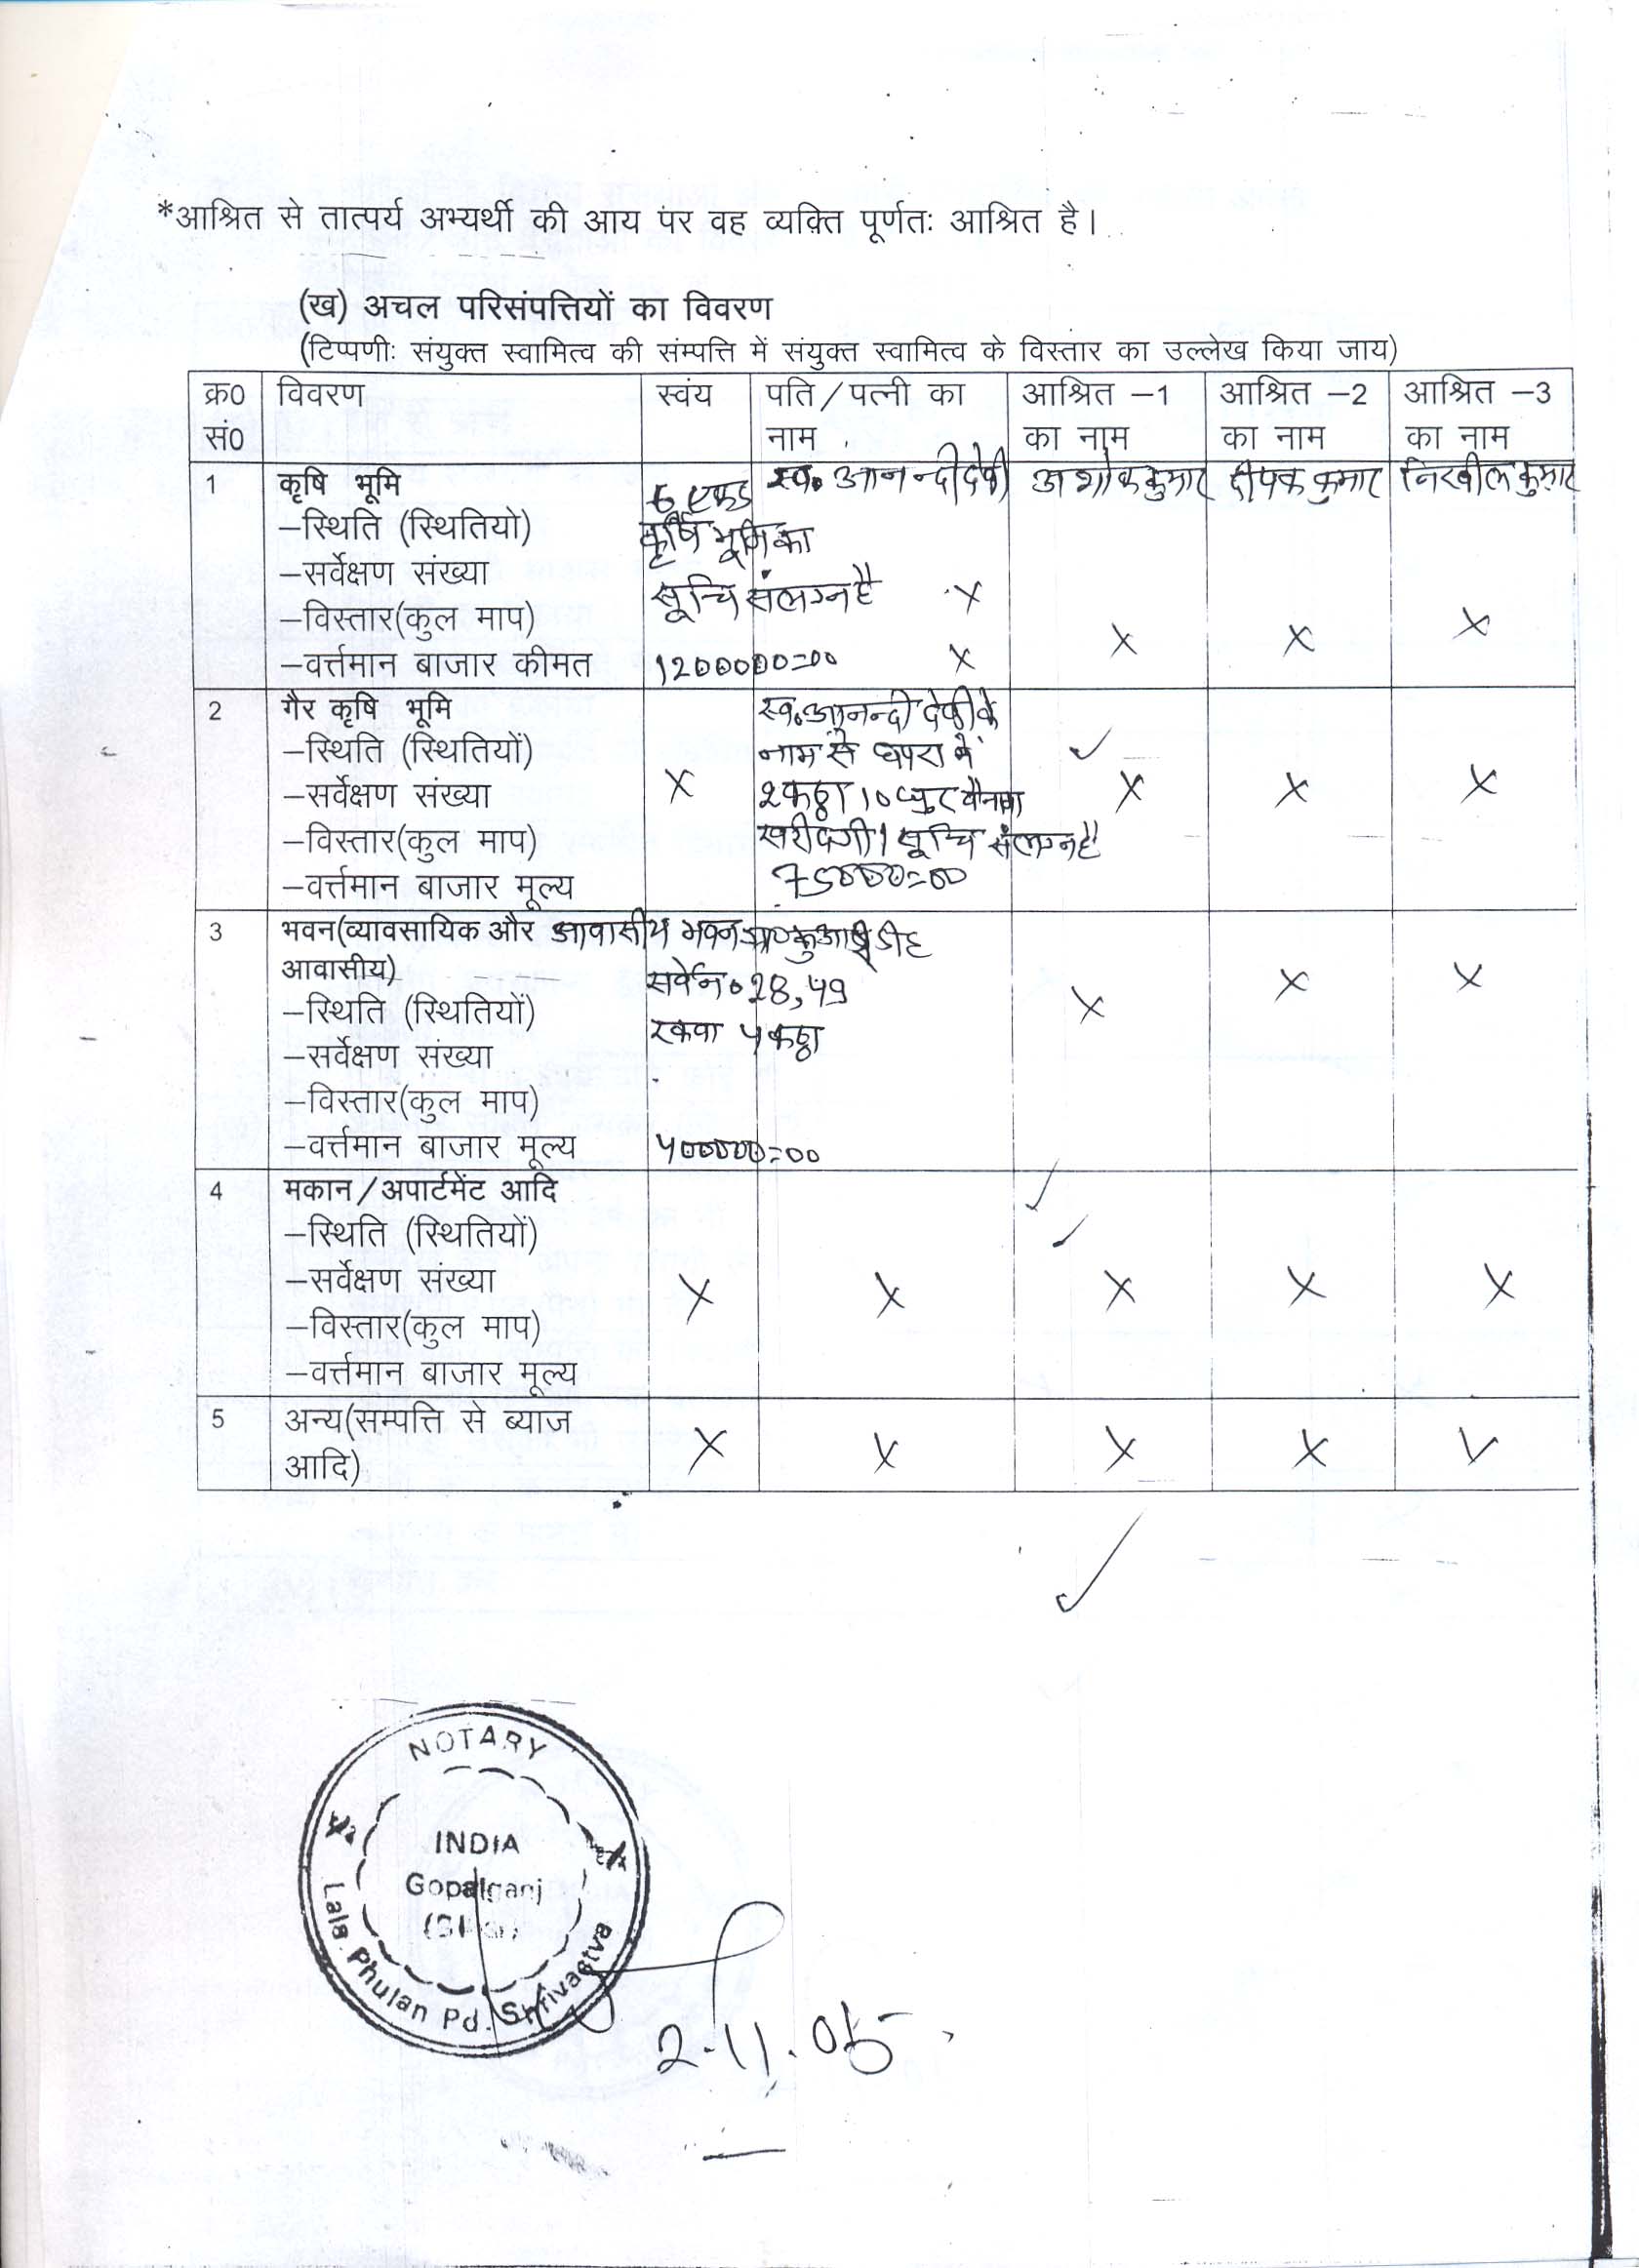 *आश्रित से तात्पर्य अभ्यर्थी की आय पर वह व्यक्ति पूर्णतः आश्रित है।
(ख) अचल परिसंपत्तियों का विवरण
(टिप्पणीः संयुक्त स्वामित्व की संम्पत्ति में संयुक्त स्वामित्व के विस्तार का उल्लेख किया जाय)
क्र0 विवरण स्वंय पति/पत्नी का आश्रित –1 आश्रित –2 आश्रित –3
सं0 नाम का नाम का नाम का नाम
1 कृषि भूमि 6 एकड़ स्व० आनन्दी देवी अशोक कुमार दीपक कुमार निखील कुमार
–स्थिति (स्थितियो) कृषि भूमि का
–सर्वेक्षण संख्या
–विस्तार(कुल माप) सूचि संलग्न है X X X X
–वर्त्तमान बाजार कीमत 1200000=00 X
2 गैर कृषि भूमि स्व० आनन्दी देवी के
–स्थिति (स्थितियों) नाम से छपरा में
–सर्वेक्षण संख्या X २ कठ्ठा 10 धुर X X X
–विस्तार(कुल माप) खरीदगी। सूचि संलग्न है
–वर्त्तमान बाजार मूल्य 750000=00
3 भवन(व्यावसायिक और आवासीय भवन
आवासीय)
–स्थिति (स्थितियों) सर्वे न० 28,49 X X X
–सर्वेक्षण संख्या रकवा ५ कठ्ठा
–विस्तार(कुल माप)
–वर्त्तमान बाजार मूल्य ५00000=00
4 मकान/अपार्टमेंट आदि
–स्थिति (स्थितियों)
–सर्वेक्षण संख्या X X X X X
–विस्तार(कुल माप)
–वर्त्तमान बाजार मूल्य
5 अन्य(सम्पत्ति से ब्याज X X X X
आदि)
NOTARY
INDIA
Gopalganj
Lala Phulan Pd. Shrivastva
2.11.05